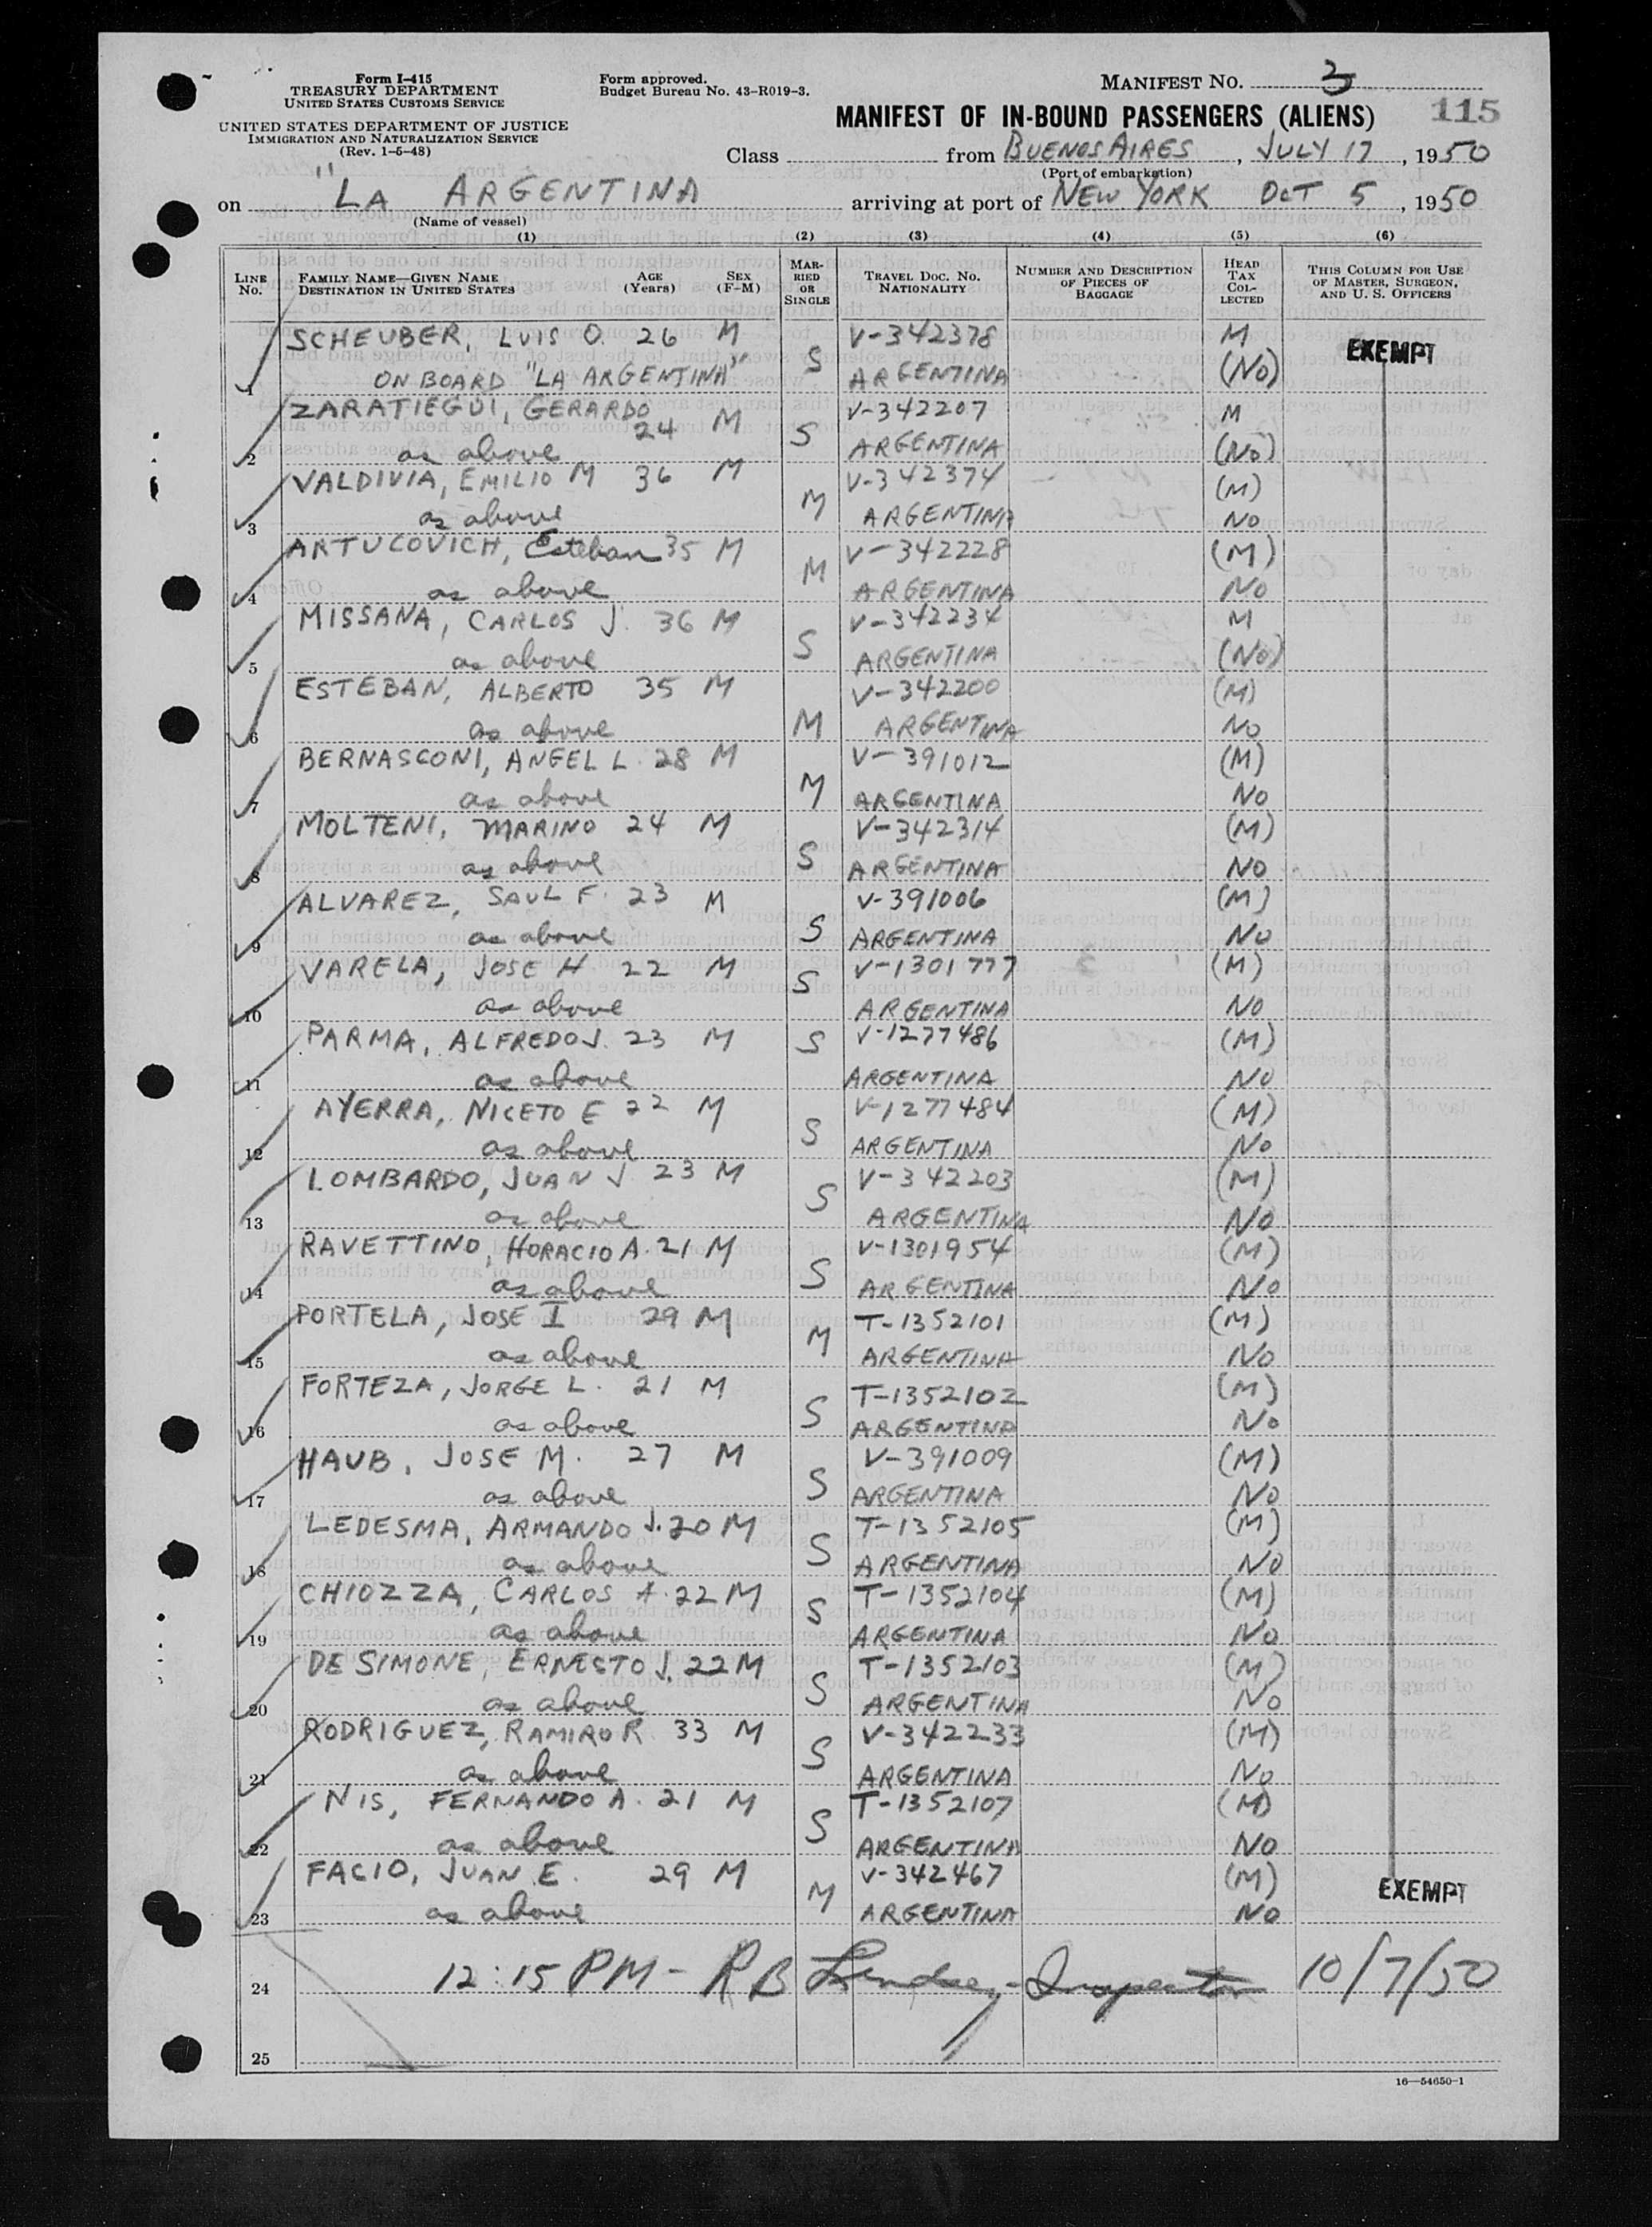 Form I-415
TREASURY DEPARTMENT
UNITED STATES CUSTOMS SERVICE
UNITED STATES DEPARTMENT OF JUSTICE
IMMIGRATION AND NATURALIZATION SERVICE
(Rev. 1-5-48)
Form approved.
Budget Bureau No. 43-R019-3.
MANIFEST NO. 3
MANIFEST OF IN-BOUND PASSENGERS (ALIENS) 115
Class from BUENOS AIRES, JULY 17, 1950
(Port of embarkation)
on "LA ARGENTINA arriving at port of NEW YORK OCT 5, 1950
(Name of vessel)
(1) (2) (3) (4) (5) (6)
LINE No. FAMILY NAME—GIVEN NAME DESTINATION IN UNITED STATES AGE (Years) SEX (F-M) MARRIED OR SINGLE TRAVEL DOC. NO. NATIONALITY NUMBER AND DESCRIPTION OF PIECES OF BAGGAGE HEAD TAX COLLECTED THIS COLUMN FOR USE OF MASTER, SURGEON, AND U. S. OFFICERS
SCHEUBER, LUIS O. 26 M S V-342378 M EXEMPT
1 ON BOARD "LA ARGENTINA" ARGENTINA (NO)
ZARATIEGUI, GERARDO 24 M S V-342207 M
2 as above ARGENTINA (NO)
VALDIVIA, EMILIO M 36 M M V-342374 (M)
3 as above ARGENTINA NO
ARTUCOVICH, Esteban 35 M M V-342228 (M)
4 as above ARGENTINA NO
MISSANA, CARLOS J. 36 M S V-342234 M
5 as above ARGENTINA (NO)
ESTEBAN, ALBERTO 35 M M V-342200 (M)
6 as above ARGENTINA NO
BERNASCONI, ANGEL L. 28 M M V-391012 (M)
7 as above ARGENTINA NO
MOLTENI, MARINO 24 M S V-342314 (M)
8 as above ARGENTINA NO
ALVAREZ, SAUL F. 23 M S V-391006 (M)
9 as above ARGENTINA NO
VARELA, JOSE H 22 M S V-1301777 (M)
10 as above ARGENTINA NO
PARMA, ALFREDO J. 23 M S V-1277486 (M)
11 as above ARGENTINA NO
AYERRA, NICETO E 22 M S V-1277484 (M)
12 as above ARGENTINA NO
LOMBARDO, JUAN J 23 M S V-342203 (M)
13 as above ARGENTINA NO
RAVETTINO, HORACIO A. 21 M S V-1301954 (M)
14 as above ARGENTINA NO
PORTELA, JOSE I 29 M M T-1352101 (M)
15 as above ARGENTINA NO
FORTEZA, JORGE L. 21 M S T-1352102 (M)
16 as above ARGENTINA NO
HAUB, JOSE M. 27 M S V-391009 (M)
17 as above ARGENTINA NO
LEDESMA, ARMANDO J. 20 M S T-1352105 (M)
18 as above ARGENTINA NO
CHIOZZA, CARLOS A. 22 M S T-1352104 (M)
19 as above ARGENTINA NO
DE SIMONE, ERNESTO J. 22 M S T-1352103 (M)
20 as above ARGENTINA NO
RODRIGUEZ, RAMIRO R 33 M S V-342233 (M)
21 as above ARGENTINA NO
NIS, FERNANDO A. 21 M S T-1352107 (M)
22 as above ARGENTINA NO
FACIO, JUAN E. 29 M M V-342467 (M) EXEMPT
23 as above ARGENTINA NO
24 12:15 PM - R B Lindsey - Inspector 10/7/50
25
16—54650-1